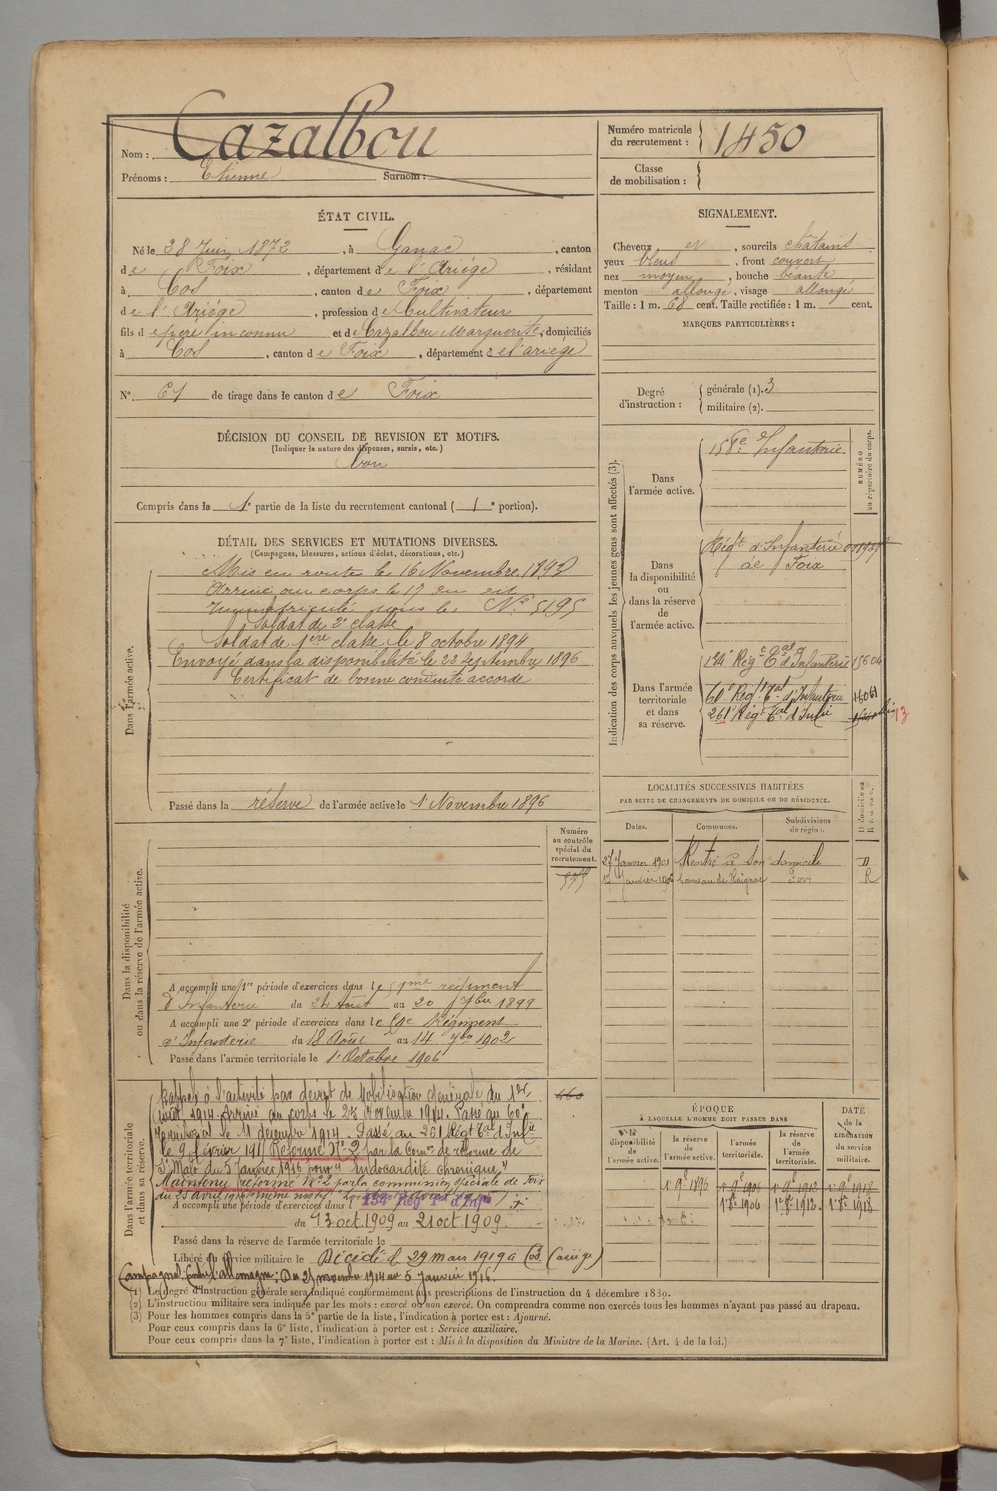 Nom : Cazalbou
Prénoms : Etienne Surnom :
Numéro matricule du recrutement : 1450
Classe de mobilisation :
ÉTAT CIVIL.
Né le 28 Juin 1872, à Ganac, canton
de Foix, département de l'Ariège, résidant
à Cos, canton de Foix, département
de l'Ariège, profession de Cultivateur
fils de père inconnu et de Cazalbou Marguerite, domiciliés
à Cos, canton de Foix, département de l'ariège
N° 61 de tirage dans le canton de Foix
DÉCISION DU CONSEIL DE REVISION ET MOTIFS.
(Indiquer la nature des dispenses, sursis, etc.)
bon
Compris dans la 1e partie de la liste du recrutement cantonal (1e portion).
SIGNALEMENT.
Cheveux et, sourcils chatains
yeux bleus, front couvert
nez moyen, bouche béante
menton allongé, visage allongé
Taille : 1 m. 68 cent. Taille rectifiée : 1 m. cent.
MARQUES PARTICULIÈRES :
Degré d'instruction : générale (1). 3
militaire (2).
DÉTAIL DES SERVICES ET MUTATIONS DIVERSES.
(Campagnes, blessures, actions d'éclat, décorations, etc.)
Dans l'armée active.
Mis en route le 16 Novembre 1893
Arrivé au corps le 17 du dit
Immatriculé sous le N° 5195
Soldat de 2e classe
Soldat de 1ère classe le 8 octobre 1894
Envoyé dans la disponibilité le 22 Septembre 1896
Certificat de bonne conduite accordé
Passé dans la réserve de l'armée active le 1er Novembre 1896
Indication des corps auxquels les jeunes gens sont affectés (3).
NUMÉRO au répertoire du corps.
Dans l'armée active.
158e d'Infanterie
Dans la disponibilité ou dans la réserve de l'armée active.
Régt d'Infanterie
de Foix
Dans l'armée territoriale et dans sa réserve.
134e Régt Tal d'Infanterie
60e Régt Tal d'Infanterie 16061
261e Régt Tal d'Infie
LOCALITÉS SUCCESSIVES HABITÉES
PAR SUITE DE CHANGEMENTS DE DOMICILE OU DE RÉSIDENCE.
Dates. Communes. Subdivisions de région. D domicile ou R résidence.
27 Janvier 1901 Rentré à son domicile D
Janvier 1902 hameau de Foix R
Dans la disponibilité ou dans la réserve de l'armée active.
Numéro au contrôle spécial du recrutement.
A accompli une 1re période d'exercices dans le 59me régiment
d'Infanterie du 24 Août au 20 7bre 1899
A accompli une 2e période d'exercices dans le 59e Régiment
d'Infanterie du 18 Août au 14 7bre 1902
Passé dans l'armée territoriale le 1er Octobre 1906
Dans l'armée territoriale et dans sa réserve.
Rappelé à l'activité par décret de Mobilisation Générale du 1er
août 1914. Arrivé au corps le 23 Novembre 1914. Passé au 60e
Territorial le 11 décembre 1914. Passé au 261 Régt Tal d'Infie
le 9 février 191 Réformé N° 2 par la Comon de réforme de
St Malo du 5 Janvier 1916 pour "Endocardite chronique"
Maintenu réformé N° 2 par la commission spéciale de Foix
du 25 avril 191
A accompli une période d'exercices dans l 134e Rég Tal d'Infie
du 13 oct 1909 au 21 oct 1909.
Passé dans la réserve de l'armée territoriale le
Libéré du service militaire le Décédé le 29 mars 1919 à Cos (ariège)
Campagne : Contre l'allemagne : Du 23 novembre 1914 au 5 janvier 1916.
ÉPOQUE
À LAQUELLE L'HOMME DOIT PASSER DANS
DATE de la LIBÉRATION du service militaire.
la disponibilité de l'armée active. la réserve de l'armée active. l'armée territoriale. la réserve de l'armée territoriale.
1er 9bre 1896 1er 9bre 1906 1er 9bre 1912 1er 9bre 1918
1er 8bre 1906 1er 8bre 1912 1er 8bre 1918
(1) Le degré d'instruction générale sera indiqué conformément aux prescriptions de l'instruction du 4 décembre 1889.
(2) L'instruction militaire sera indiquée par les mots : exercé ou non exercé. On comprendra comme non exercés tous les hommes n'ayant pas passé au drapeau.
(3) Pour les hommes compris dans la 5e partie de la liste, l'indication à porter est : Ajourné.
Pour ceux compris dans la 6e liste, l'indication à porter est : Service auxiliaire.
Pour ceux compris dans la 7e liste, l'indication à porter est : Mis à la disposition du Ministre de la Marine. (Art. 4 de la loi.)